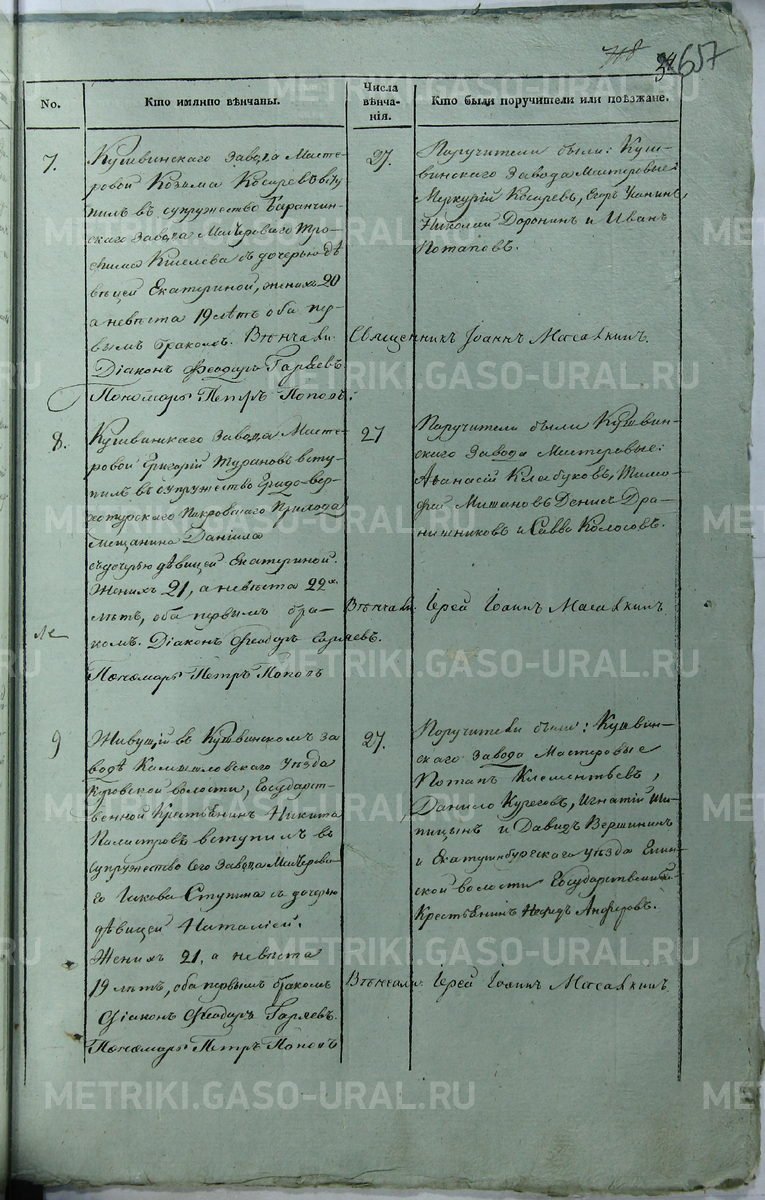 718 657
No. Кто имянно вѣнчаны. Числа вѣнчанія. Кто были поручители или поѣзжане.
7.
Кушвинскаго Завода Масте-
ровой Козьма Косаревъ всту-
пилъ въ супружество Баранчин-
скаго Завода Мастероваго Тро-
фима Киселева съ дочерью дѣ
вицей Екатериной, жениху 20
а невѣста 19 лѣтъ оба пер-
вымъ бракомъ. Вѣнчали.
Діаконъ Феодоръ Гаряевъ
Пономарь Петръ Поповъ.
27.
Поручители были: Куш-
винскаго Завода Мастеровые:
Меркурій Косаревъ, Егоръ
Николай Доронинъ и Иванъ
Потаповъ.
Священникъ Іоаннъ Масалкинъ.
8.
Кушвинскаго Завода Масте-
ровой Григорій Турановъ всту-
пилъ въ супружество Градо-Вер-
хотурскаго Покровскаго Прихода
мещанина Даніила
съ дочерью дѣвицей Екатериной.
Жениху 21, а невѣста 22хъ
лѣтъ, оба первымъ бра-
комъ. Діаконъ Феодоръ Гаряевъ.
Пономарь Петръ Поповъ
27
Поручители были Кушвин-
скаго Завода Мастеровые:
Афанасій Клабуковъ, Тимо-
фей Мишановъ Денисъ Дра-
нишниковъ и Савва Колосовъ.
Вѣнчали. Іерей Іоаннъ Масалкинъ
9
Живущій въ Кушвинскомъ за
водѣ Камышловскаго Уѣзда
Куровской волости, Государст-
венной Крестьянинъ Никита
Палистровъ вступилъ въ
Супружество Сего Завода Мастерова-
го Іакова Ступина съ дочерью
дѣвицей Наталіей.
Жениху 21, а невѣста
19 лѣтъ, оба первымъ бракомъ
Діаконъ Феодоръ Гаряевъ.
Пономарь Петръ Поповъ
27.
Поручители были: Кушвин-
скаго Завода Мастеровые
Потапъ Клементьевъ,
Данило Кучговъ, Игнатій Ши-
пицынъ и Давидъ Вершининъ
и Екатеринбурскаго уѣзда
ской волости Государственный
Крестьянинъ Нефидъ Анферовъ.
Вѣнчали. Іерей Іоаннъ Масалкинъ
METRIKI.GASO-URAL.RU